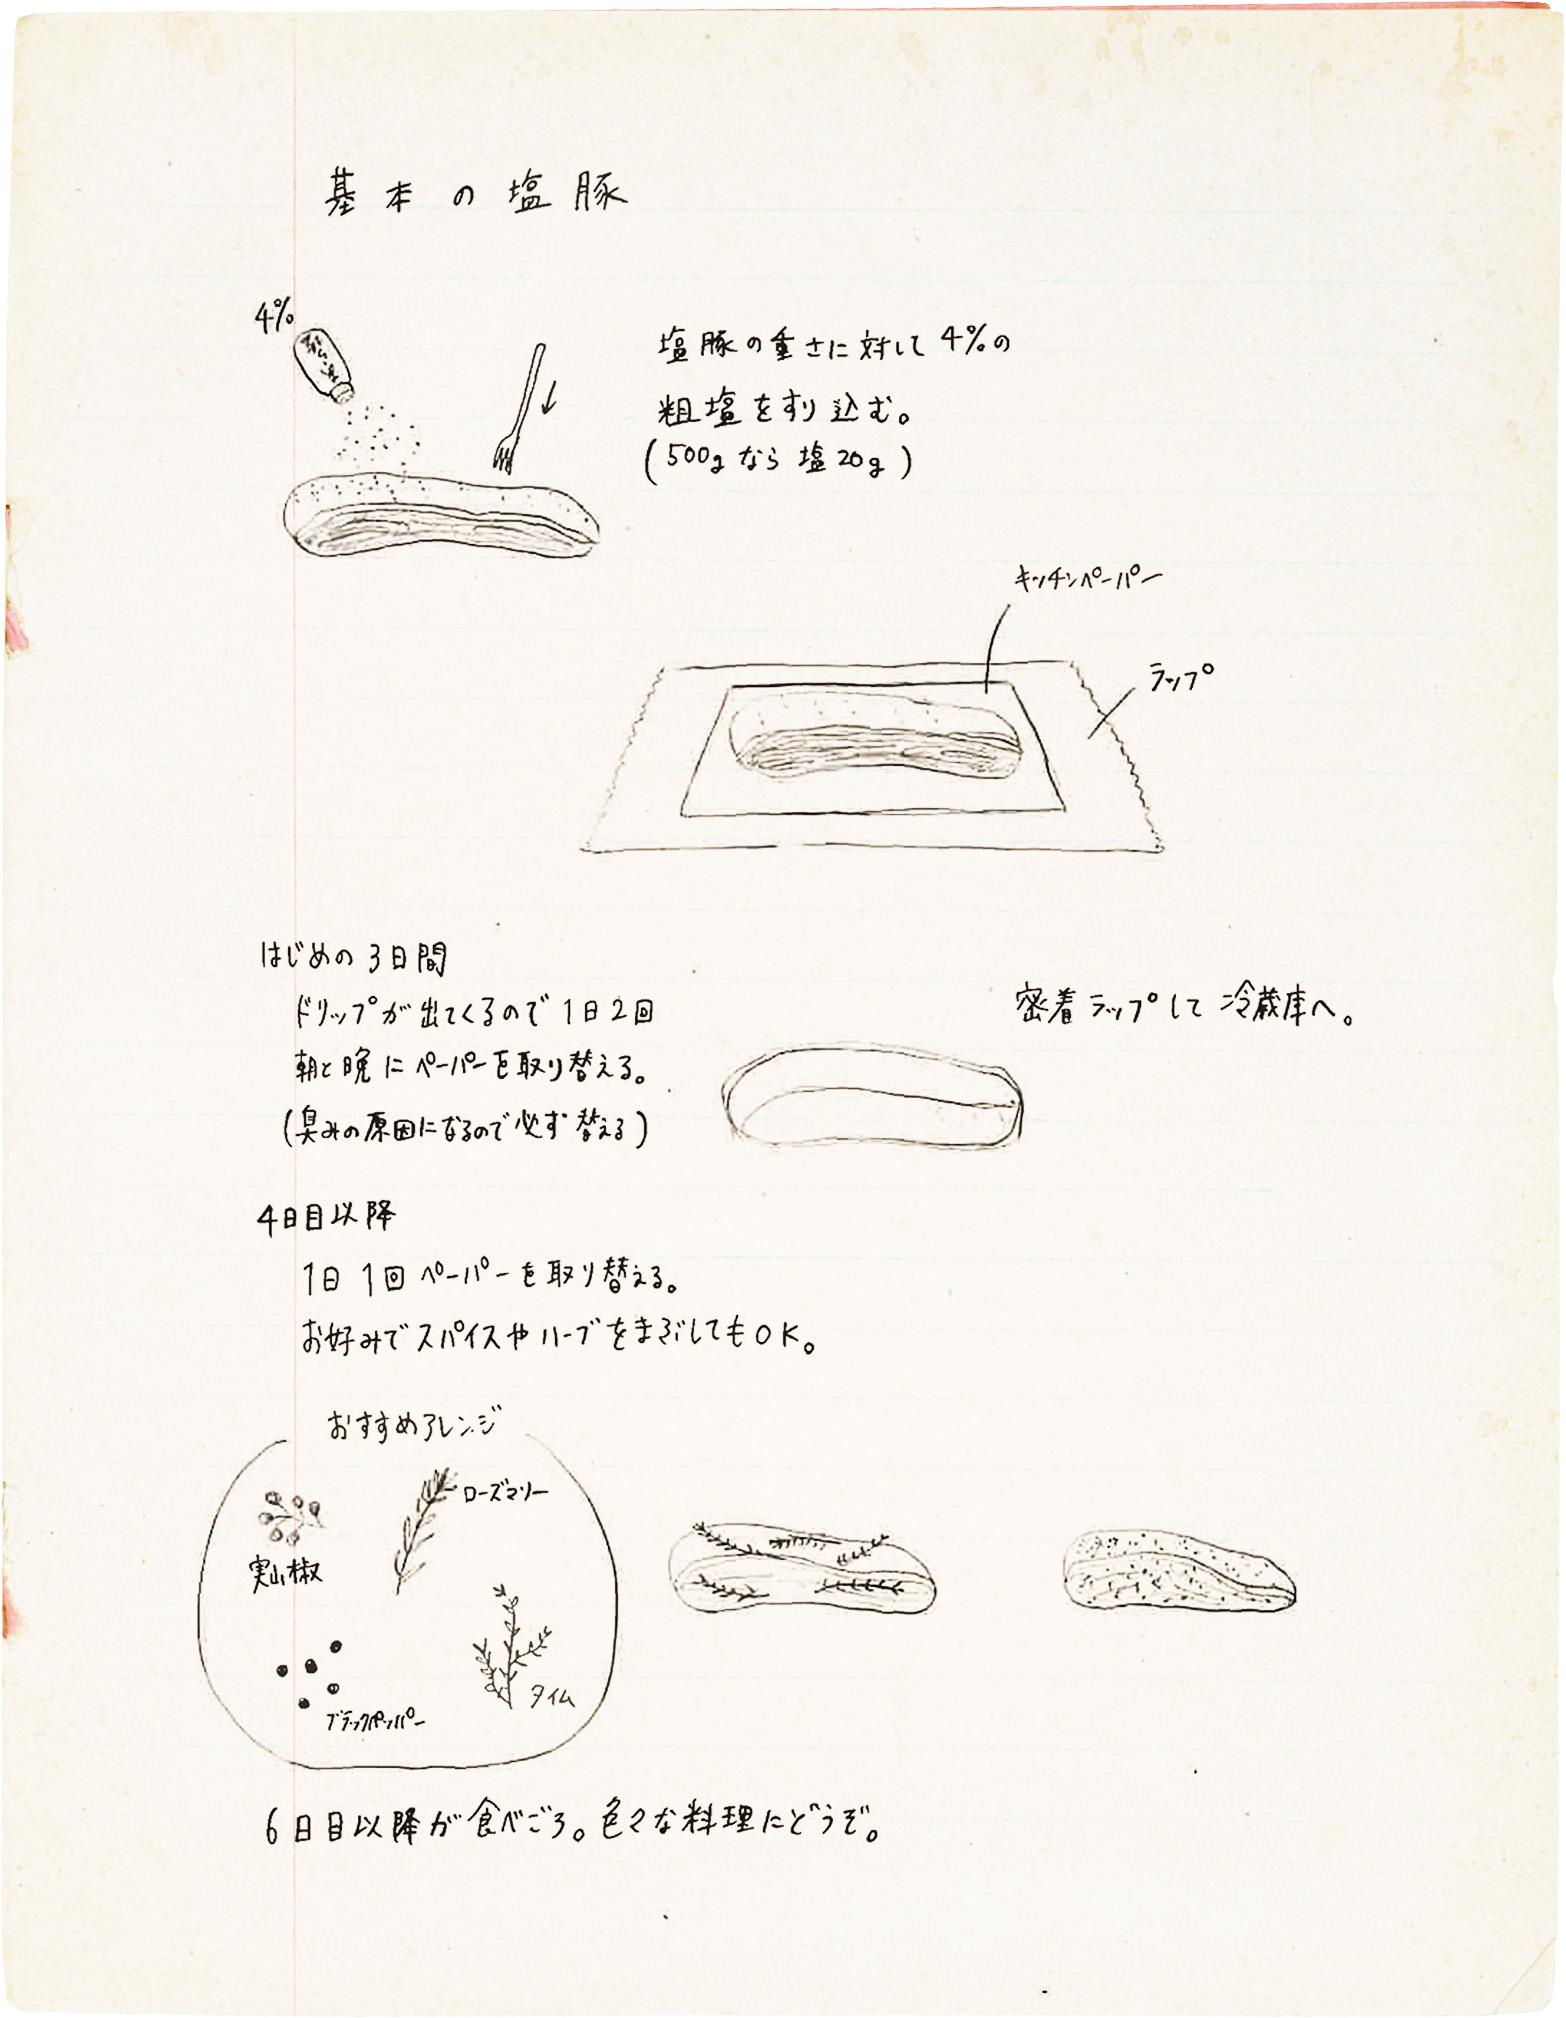 基本の塩豚
4%
塩豚の重さに対して4%の
粗塩をすり込む。
(500gなら塩20g)
キッチンペーパー
ラップ
はじめの3日間
ドリップが出てくるので1日2回
朝と晩にペーパーを取り替える。
(臭みの原因になるので必ず替える)
密着ラップして冷蔵庫へ。
4日目以降
1日1回ペーパーを取り替える。
お好みでスパイスやハーブをまぶしてもOK。
おすすめアレンジ
ローズマリー
実山椒
タイム
ブラックペッパー
6日目以降が食べごろ。色々な料理にどうぞ。